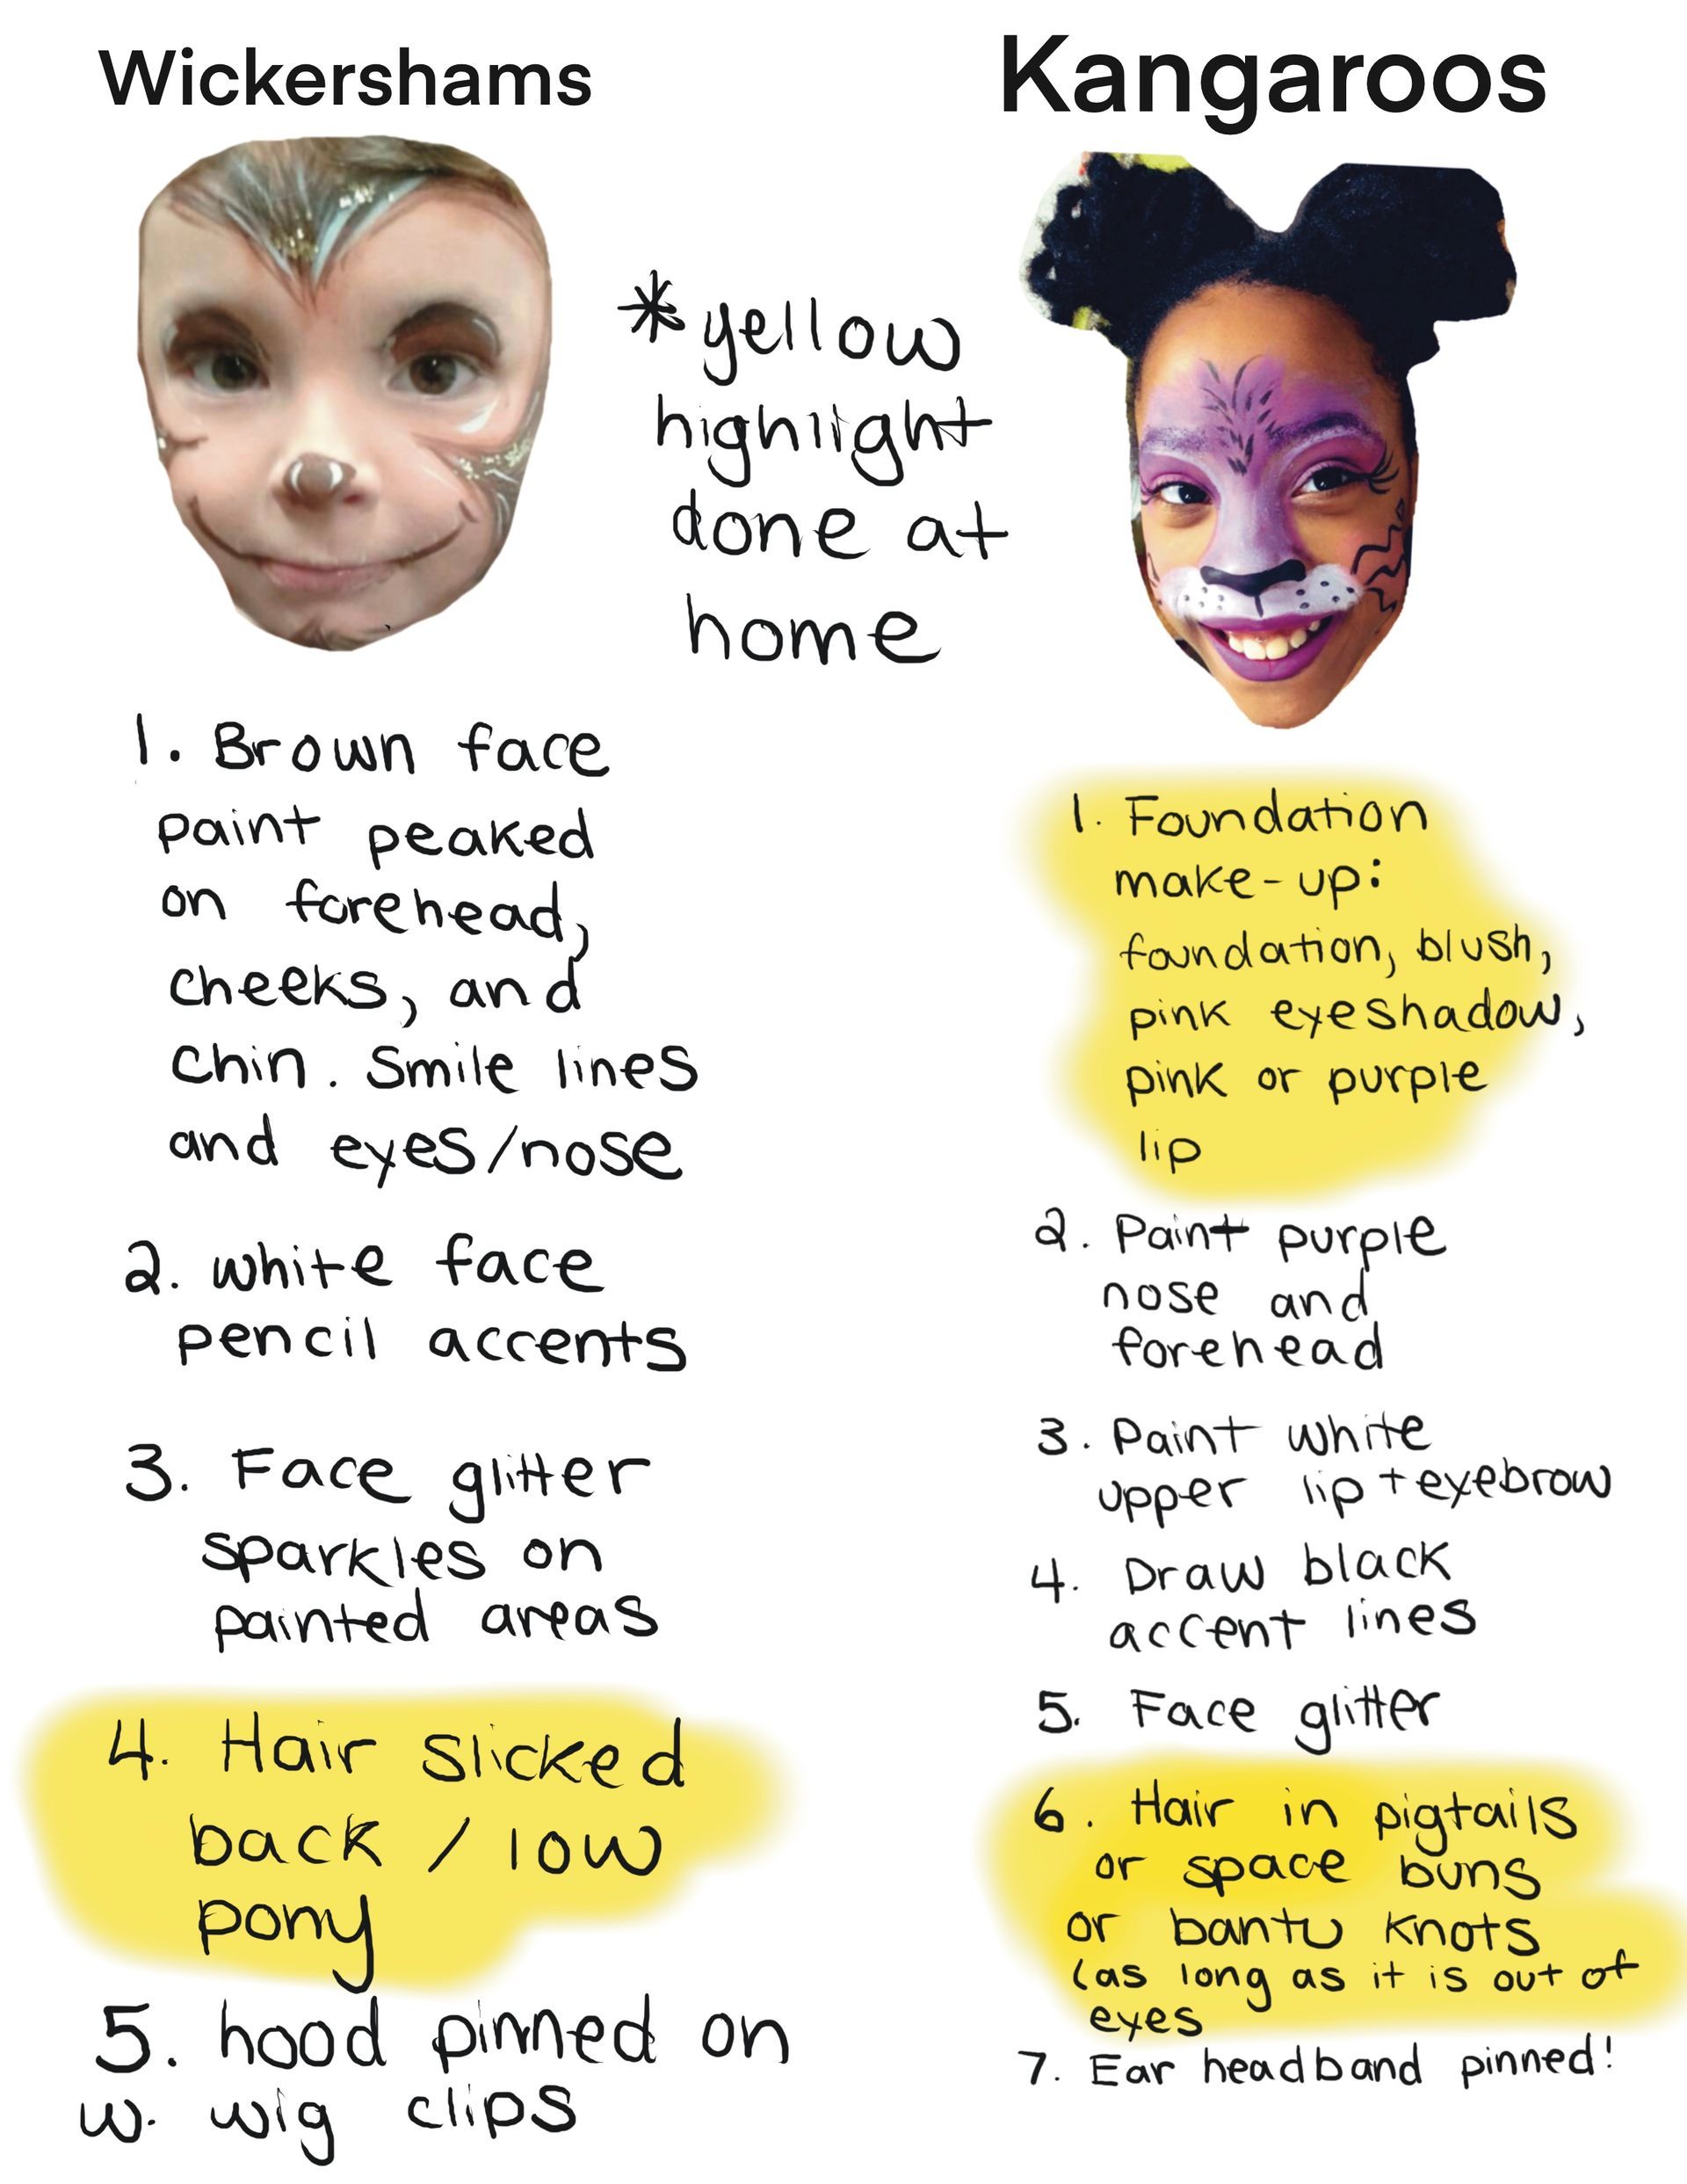 Wickershams
Kangaroos
*yellow
highlight
done at
home
1. Brown face
paint peaked
on forehead,
cheeks, and
chin. Smile lines
and eyes/nose
2. white face
pencil accents
3. Face glitter
sparkles on
painted areas
4. Hair slicked
back / low
pony
5. hood pinned on
w. wig clips
1. Foundation
make-up:
foundation, blush,
pink eyeshadow,
pink or purple
lip
2. Paint purple
nose and
forehead
3. Paint white
upper lip + eyebrow
4. Draw black
accent lines
5. Face glitter
6. Hair in pigtails
or space buns
or bantu knots
(as long as it is out of
eyes
7. Ear headband pinned!